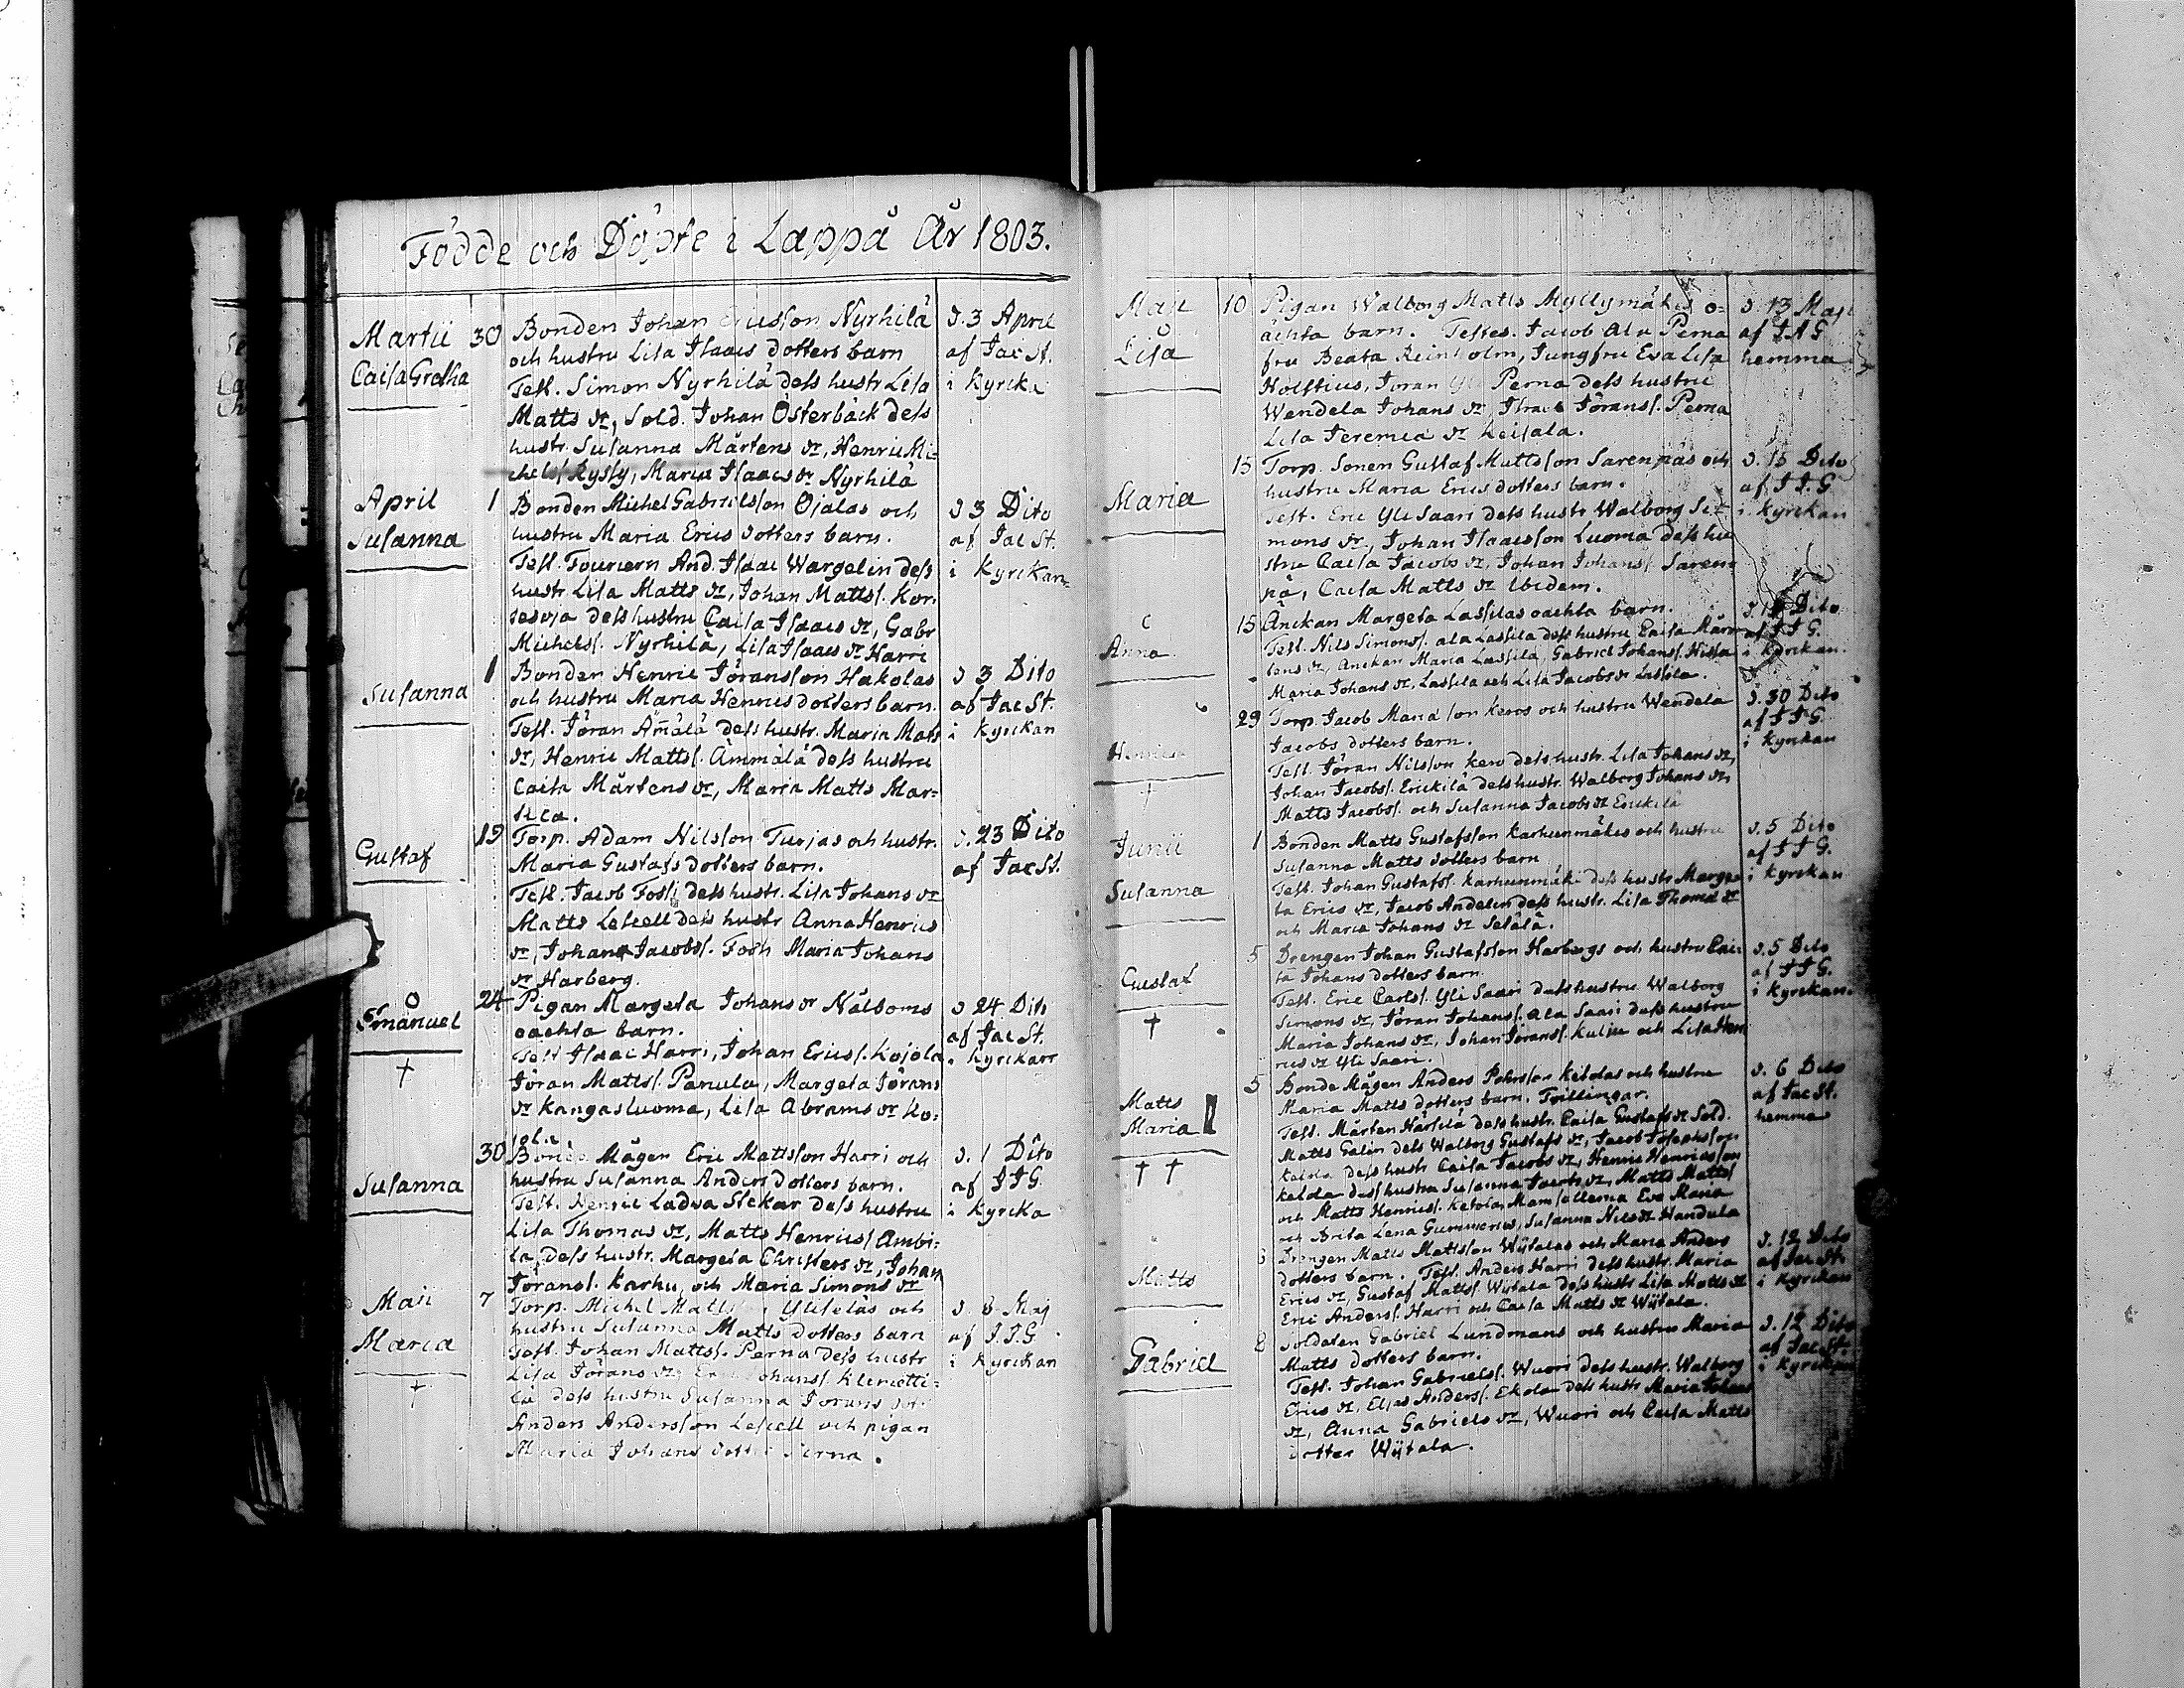 Födde och Döpte i Lappå År 1803.
Martii 30 Bonden Johan Ericsson Nyrhilä d. 3 April
och hustru Lisa Isaacs dotters barn af Jac St.
Caisa Gretha Test. Simon Nyrhilä dess hustr Lisa i Kyrka
Matts dr, Sold. Johan Österbäck dess
hustr. Susanna Mårtens dr, Henric Mi=
chelss Ryssy, Maria Isaacs dr Nyrhilä
April 1 Bonden Michel Gabrielsson Ojalas och d 3 Dito
Susanna hustru Maria Erics dotters barn. af Jac St.
Test. Fouriern And. Isaac Wargelin dess i Kyrckan
hustr Lisa Matts dr, Johan Mattss. Kor=
sesoja dess hustru Caisa Isaacs dr, Gabr
Michelss. Nyrhilä, Lisa Isaacs dr Harri
Susanna 1 Bonden Henric Göransson Hakolas d 3 Dito
och hustru Maria Henrics dotters barn. af Jac St.
Test. Jöran Ämälä dess hustr. Maria Mats i Kyrckan
dr, Henric Mattss. Ämmälä dess hustru
Caisa Mårtens dr, Maria Matts Mar=
sica.
Gustaf 19 Torp. Adam Nilsson Turjas och hustr. d. 23 Dito
Maria Gustafs dotters barn. af Jac St.
Test. Jacob Foss, dess hustr. Lisa Johans dr
Matts Lesell dess hustr Anna Henrics
dr, Johan Jacobss. Fosh Maria Johans
dr Harberg.
O 24 Pigan Margeta Johans dr Nålboms d 24 Dito
Emanuel oächta barn. af Jac St.
Test Isaac Harri, Johan Ericss. Kojola i Kyrckan
† Jöran Mattss. Panula, Margeta Jörans
dr Kangasluoma, Lisa Abrams dr Ko=
jola
30 Bonde Mågen Eric Mattsson Harri och d. 1 Dito
Susanna hustru Susanna Anders Dotters barn. af J J G
Test. Henric Ladva Stekar dess hustru i Kyrcka
Lisa Thomas dr, Matts Henricss Ambi=
la, dess hustr. Margeta Christers dr, Johan
Jöranss. Karhu, och Maria Simons dr
Maii 7 Torp. Michel Matts Yliseläs och d. 8 Maj
Maria hustru Susanna Matts dotters barn af J.J.G
Test. Johan Mattss. Perna dess hustr i Kyrckan
† Lisa Jörans dr, Johanss. Klemetti=
lä dess hustru Susanna Jorans dr
Anders Andersson Lesell och pigan
Maria Johans dotter Perna.
Maii 10 Pigan Walborg Matts Myllymäkis o= d. 13 Maji
Lisa ächta barn. Testes. Jacob Ala Perna af J J G
fru Beata Reinholm, Jungfru Eva Lisa hemma
Holstius, Jöran Yli Perna dess hustru
Wendela Johans dr, Isaac Jöranss. Perna
Lisa Jeremia dr Leisala.
15 Torp. Sonen Gustaf Mattsson Sarenpäs och d. 15 Dito
Maria hustru Maria Erics dotters barn. af J J. G
Test. Eric Yli Saari dess hustr Walborg Si= i Kyrckan
mons dr, Johan Isaacsson Luoma dess hu
stru Caisa Jacobs dr, Johan Johanss. Saren
pä, Caisa Matts dr Ibidem.
15 Änckan Margeta Lassilas oächta barn. Dito
Anna Test. Nils Simonss. Ala Lassila dess hustru Caisa Mår= af J J G.
tens dr, Anckan Maria Lassila, Gabriel Johanss. Hissa i Kyrckan.
Maria Johans dr, Lassila och Lisa Jacobs dr Lassila.
29 Torp. Jacob Mariasson Keros och hustru Wendela d. 30 Dito
Henrica Jacobs dotters barn. af J J G.
† Test. Jöran Nilsson Kero dess hustr. Lisa Johans dr, i Kyrckan
Johan Jacobss. Erickilä dess hustr. Walborg Johans dr,
Matts Jacobss. och Susanna Jacobs dr Erickilä
Junii 1 Bonden Matts Gustafsson Karhunmäkis och hustru d. 5 Dito
Susanna Susanna Matts dotters barn af J J G.
Test. Johan Gustafss. Karhunmäki dess hustr Marge= i Kyrckan
ta Erics dr, Jacob Andelin dess hustr. Lisa Thomæ dr
och Maria Johans dr Selälä.
5 Drengen Johan Gustafsson Harbergs och hustru Cai= d. 5 Dito
Gustaf sa Johans dotters barn. af J J G.
† Test. Eric Carlss. Yli Saari dess hustru Walborg i Kyrckan.
Simons dr, Jöran Johanss. Ala Saari dess hustru
Maria Johans dr, Johan Jöranss. Kulju och Lisa Hen
rics dr Yli Saari.
5 Bonde Mågen Anders Pehrsson Ketolas och hustru d. 6 Dito
Matts Maria Matts dotters barn. Tvillingar. af Jac St.
Maria Test. Mårten Härsilä dess hustr. Caisa Gustafs dr Sold. hemma
† † Matts Galin dess Walborg Gustafs dr, Jacob Josephsson
Ketola dess hustr Caisa Jacobs dr, Henric Henricsson
Ketola dess hustru Susanna Jacobs dr, Matts Mattss
och Matts Henricss. Ketola, Mamsellerna Eva Maria
och Brita Lena Gummerus, Susanna Nils dr Handula
8 Drengen Matts Mattsson Wijtalas och Maria Anders d. 12 Dito
Matts dotters barn. Test. Anders Harri dess hustr. Maria af Jac St.
Erics dr, Gustaf Mattss Wijtala dess hustr Lisa Matts dr i Kyrckan
Eric Anderss. Harri och Caisa Matts dr Wijtala.
8 Soldaten Gabriel Lundmans och hustru Maria d. 12 Dito
Gabriel Matts dotters barn. af Jac St.
Test. Johan Gabrielss. Wuori dess hustr. Walborg i Kyrckan
Erics dr, Elias Anderss. Ekola dess hustr Maria Johans
dr, Anna Gabriels dr, Wuori och Caisa Matts
dotter Wijtala.